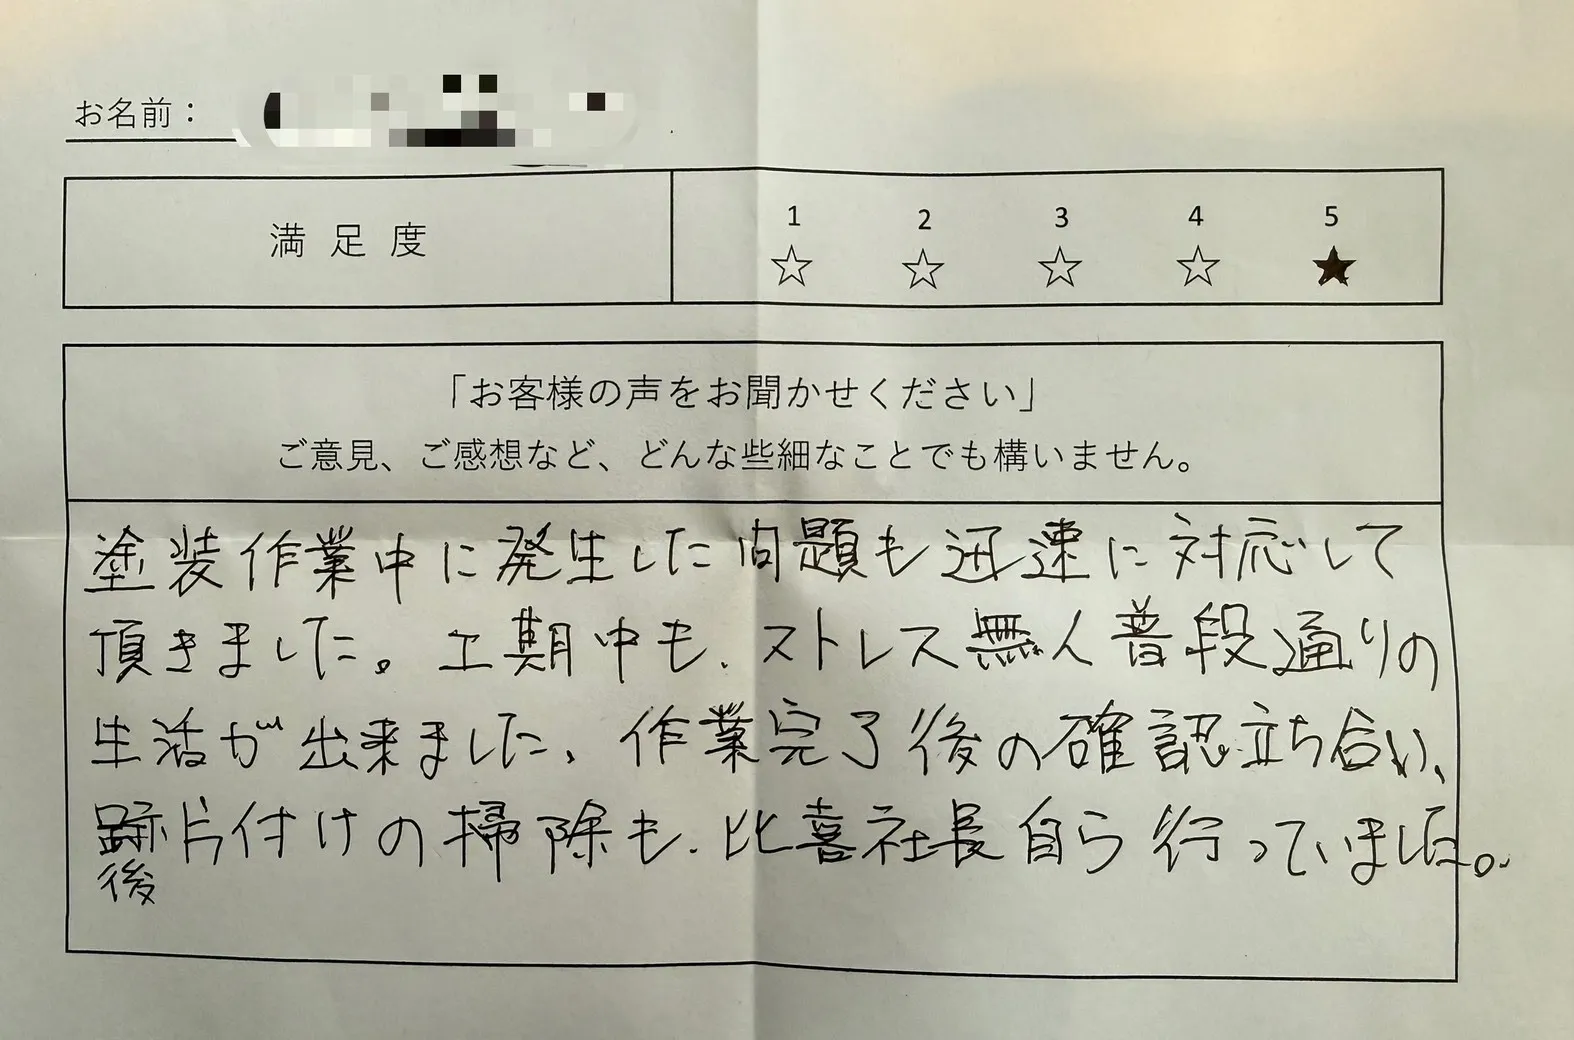 お名前：
満足度
1 2 3 4 5
☆ ☆ ☆ ☆ ★
「お客様の声をお聞かせください」
ご意見、ご感想など、どんな些細なことでも構いません。
塗装作業中に発生した問題も迅速に対応して
頂きました。工期中も、ストレス無く普段通りの
生活が出来ました、作業完了後の確認立ち合い、
跡片付けの掃除も、比喜社長自ら行っていました。
後